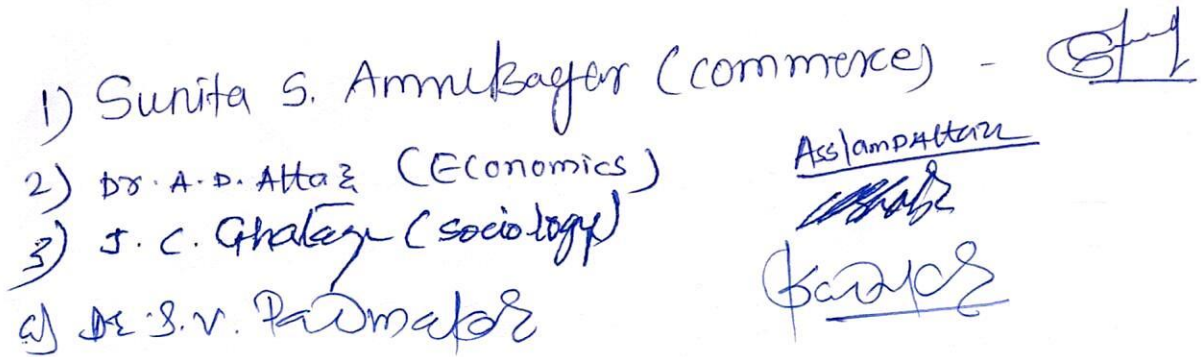 1) Sunita S. Ammukagar (commerce) -
2) Dr. A. D. Attar (Economics) AsslamDAttar
3) J. C. Ghatage (sociology)
4) Dr. S. V. Padmakar